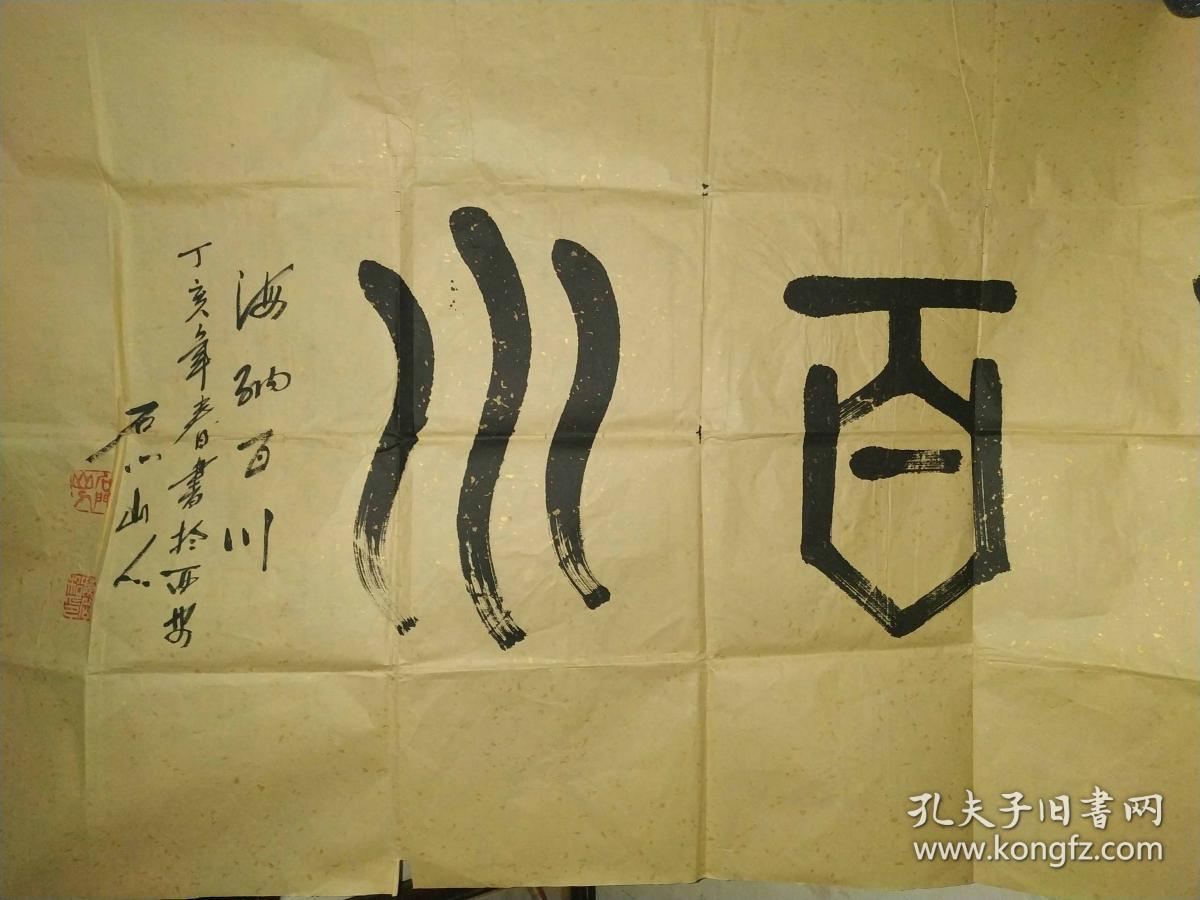 百川
海纳百川
丁亥年春日書於西安
石门山人
孔夫子旧書网
www.kongfz.com